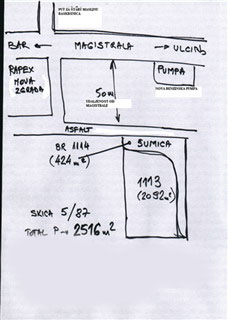 PUT ZA ŠUŠANJ MASLINU
BAR ← MAGISTRALA → ULCINJ
RAPEX
NOVA
ZGRADA
PUMPA
NOVA BENZINSKA PUMPA
50m
UDALJENOST OD
MAGISTRALE
ASFALT
BR 1114
(424 m²)
ŠUMICA
1113
(2092 m²)
SKICA 5/87
TOTAL P → 2516 m²